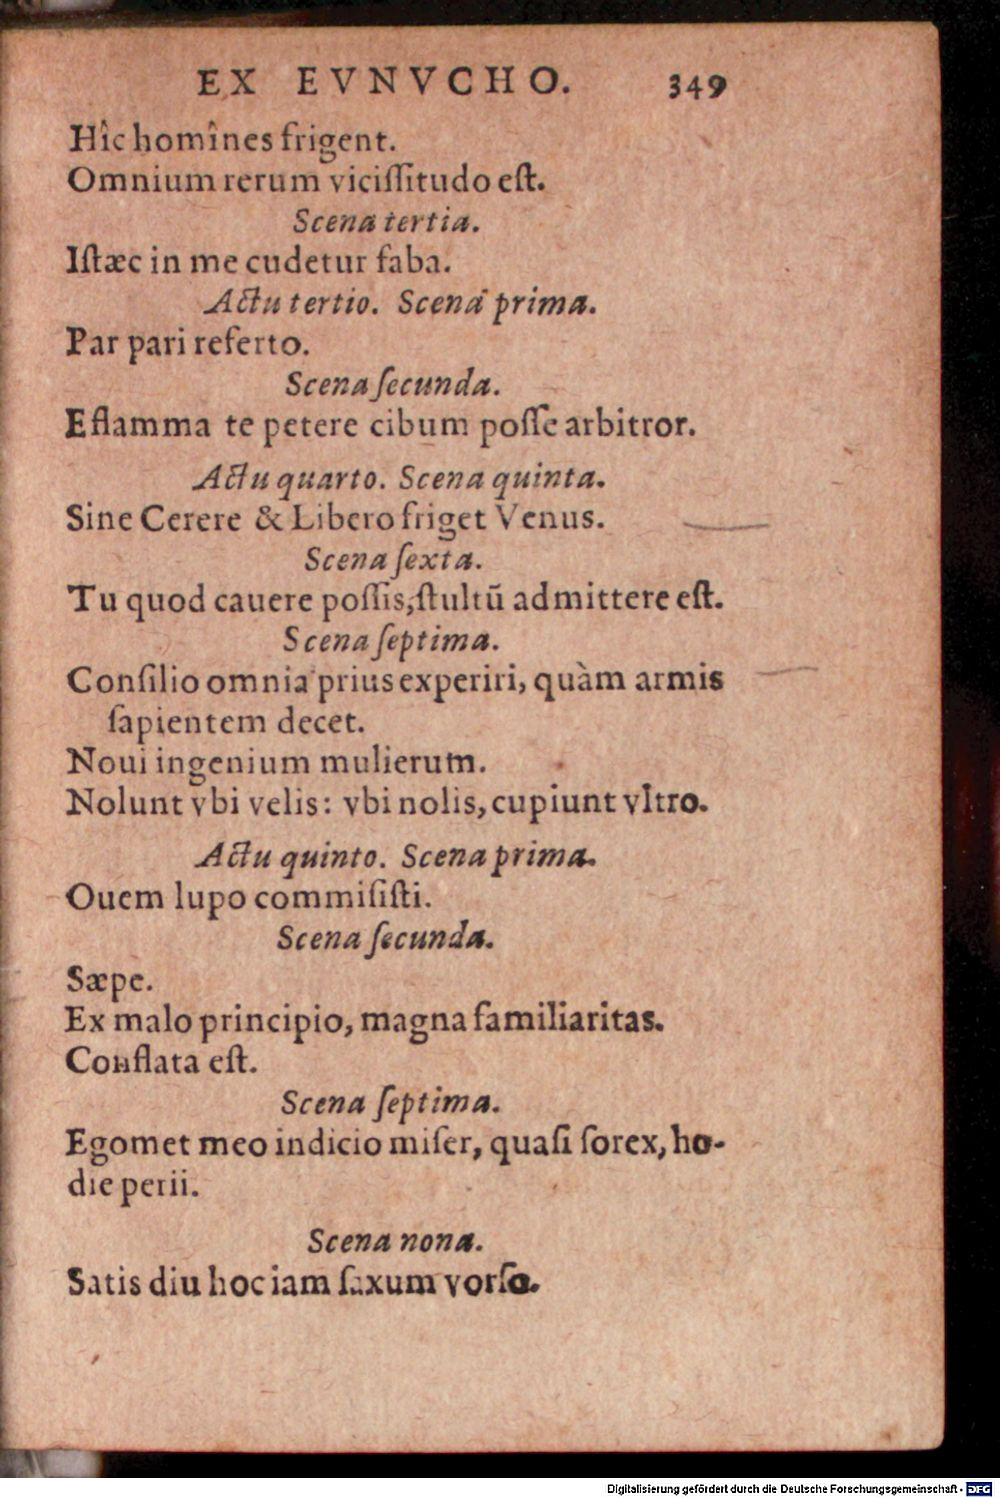 EX EVNVCHO. 349
Hîc homînes frigent.
Omnium rerum viciſſitudo eſt.
Scena tertia.
Iſtæc in me cudetur faba.
Actu tertio. Scena prima.
Par pari referto.
Scena ſecunda.
E flamma te petere cibum poſſe arbitror.
Actu quarto. Scena quinta.
Sine Cerere & Libero friget Venus.
Scena ſexta.
Tu quod cauere poſſis, ſtultū admittere eſt.
Scena ſeptima.
Conſilio omnia prius experiri, quàm armis
ſapientem decet.
Noui ingenium mulierum.
Nolunt vbi velis: vbi nolis, cupiunt vltro.
Actu quinto. Scena prima.
Ouem lupo commiſiſti.
Scena ſecunda.
Sæpe.
Ex malo principio, magna familiaritas.
Conflata eſt.
Scena ſeptima.
Egomet meo indicio miſer, quaſi ſorex, ho-
die perii.
Scena nona.
Satis diu hoc iam ſaxum vorſo.
Digitalisierung gefördert durch die Deutsche Forschungsgemeinschaft - DFG